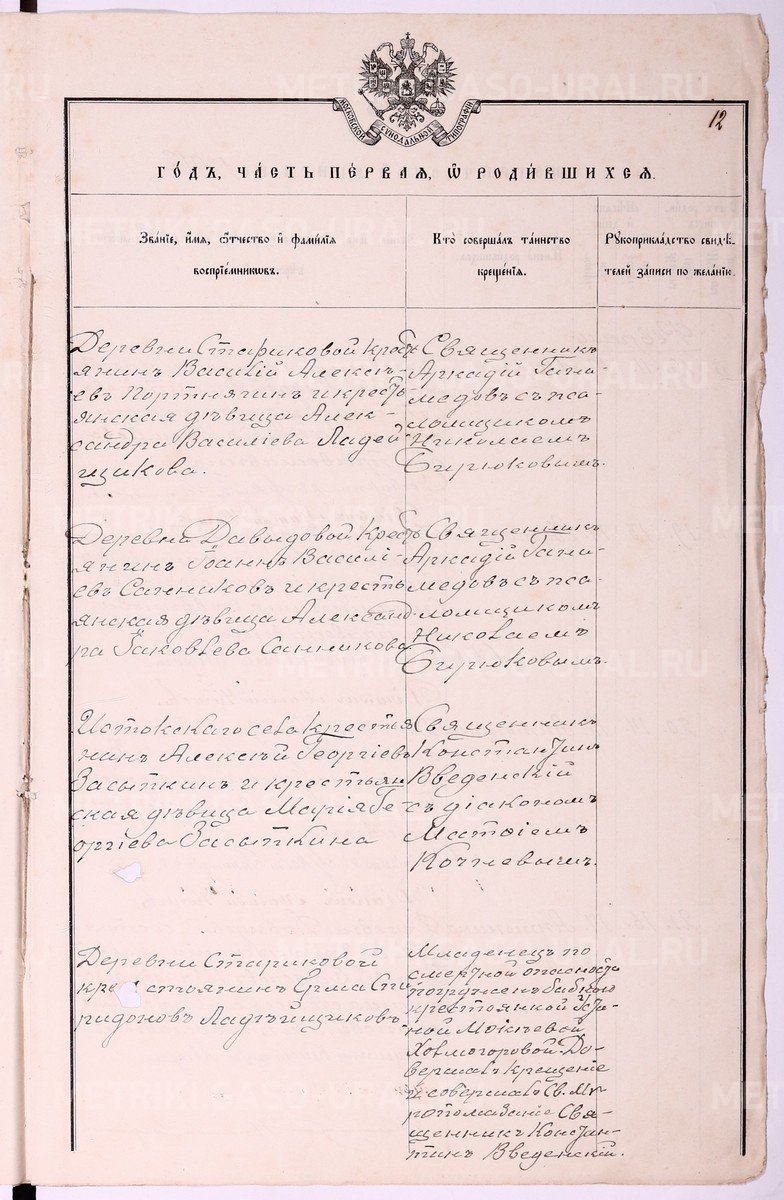 МОСКОВСКОЙ СѴНОДАЛЬНОЙ ТИПОГРАФІИ
12
ГО́ДЪ, ЧА́СТЬ ПЕ́РВАЯ, Ѽ РОДИ́ВШИХСЯ.
Зва́ніе, и́мя, ѻ҆́тчество и҆ фами́лія
воспріе́мниковъ.
Кто̀ соверша́лъ та́инство
креще́нія.
Рꙋкоприкла́дство свидѣ́-
телей за́писи по жела́нію.
Деревни Стариковой крест
янинъ Василій Алексѣ-
евъ Портнягинъ и кресть
янская дѣвица Алек-
сандра Василіева Ладей
щикова.
Священникъ
Аркадій Гани-
медовъ съ пса-
ломщикомъ
Николаемъ
Бирюковымъ.
Деревни Давыдовой крест
янинъ Іоаннъ Василі-
евъ Санниковъ и кресть
янская дѣвица Александ-
ра Іаковлева Санникова
Священникъ
Аркадій Гани-
медовъ съ пса-
ломщикомъ
Николаемъ
Бирюковымъ.
Истокскаго села крестья
нинъ Алексѣй Георгіевъ
Засыпкинъ и крестьян
ская дѣвица Марія Ге-
оргіева Засыпкина
Священникъ
Константинъ
Введенскій
съ діакономъ
Матѳіемъ
Кочневымъ.
Деревни Стариковой
крестьянинъ Ерма Спи
ридоновъ Ладѣйщиковъ
Младенецъ по
смертной опасности
погруженъ бабкою
крестьянкой Усти-
ной Мокѣевой
Холмогоровой. До-
вершалъ крещеніе
и совершалъ Св. Мѵ
ропомазаніе Свя-
щенникъ Констан-
тинъ Введенскій.